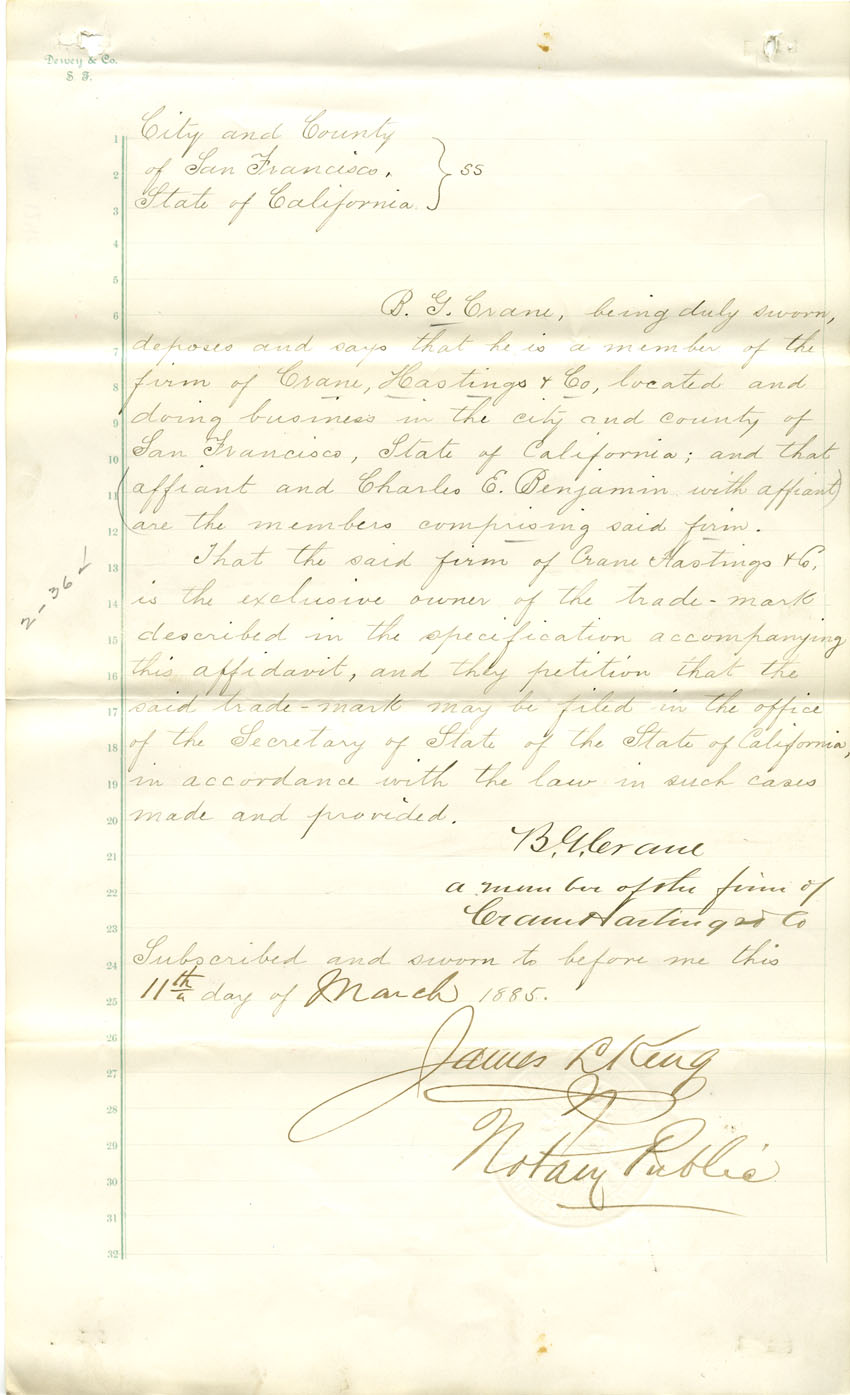 Dewey & Co.
S. F.
City and County
of San Francisco, } ss
State of California.
B. G. Crane, being duly sworn,
deposes and says that he is a member of the
firm of Crane, Hastings & Co, located and
doing business in the city and county of
San Francisco, State of California; and that
(affiant and Charles E. Benjamin with affiant)
are the members comprising said firm.
That the said firm of Crane Hastings & Co.
is the exclusive owner of the trade-mark
described in the specification accompanying
this affidavit, and they petition that the
said trade-mark may be filed in the office
of the Secretary of State of the State of California,
in accordance with the law in such cases
made and provided.
B. G. Crane
a member of the firm of
Crane Hastings & Co
Subscribed and sworn to before me this
11th day of March 1885.
James L King
Notary Public
2-362
1
2
3
4
5
6
7
8
9
10
11
12
13
14
15
16
17
18
19
20
21
22
23
24
25
26
27
28
29
30
31
32